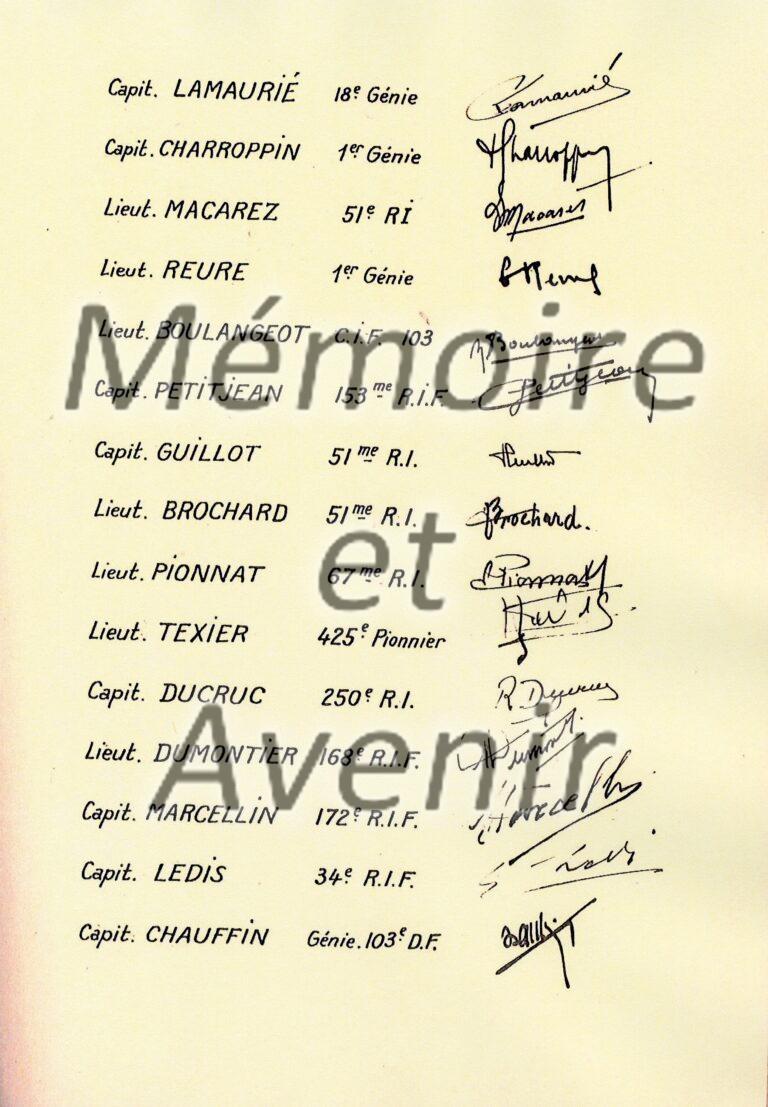 Capit. LAMAURIÉ 18e Génie Lamaurié
Capit. CHARROPPIN 1er Génie Charroppin
Lieut. MACAREZ 51e RI Macarez
Lieut. REURE 1er Génie Reure
Lieut. BOULANGEOT C.I.F. 103 Boulangeot
Capit. PETITJEAN 153me R.I.F. Petitjean
Capit. GUILLOT 51me R.I.
Lieut. BROCHARD 51me R.I. Brochard.
Lieut. PIONNAT 67me R.I. Pionnat
Lieut. TEXIER 425e Pionnier
Capit. DUCRUC 250e R.I.
Lieut. DUMONTIER 168e R.I.F.
Capit. MARCELLIN 172e R.I.F.
Capit. LEDIS 34e R.I.F.
Capit. CHAUFFIN Génie. 103e D.F.
Mémoire
et
Avenir